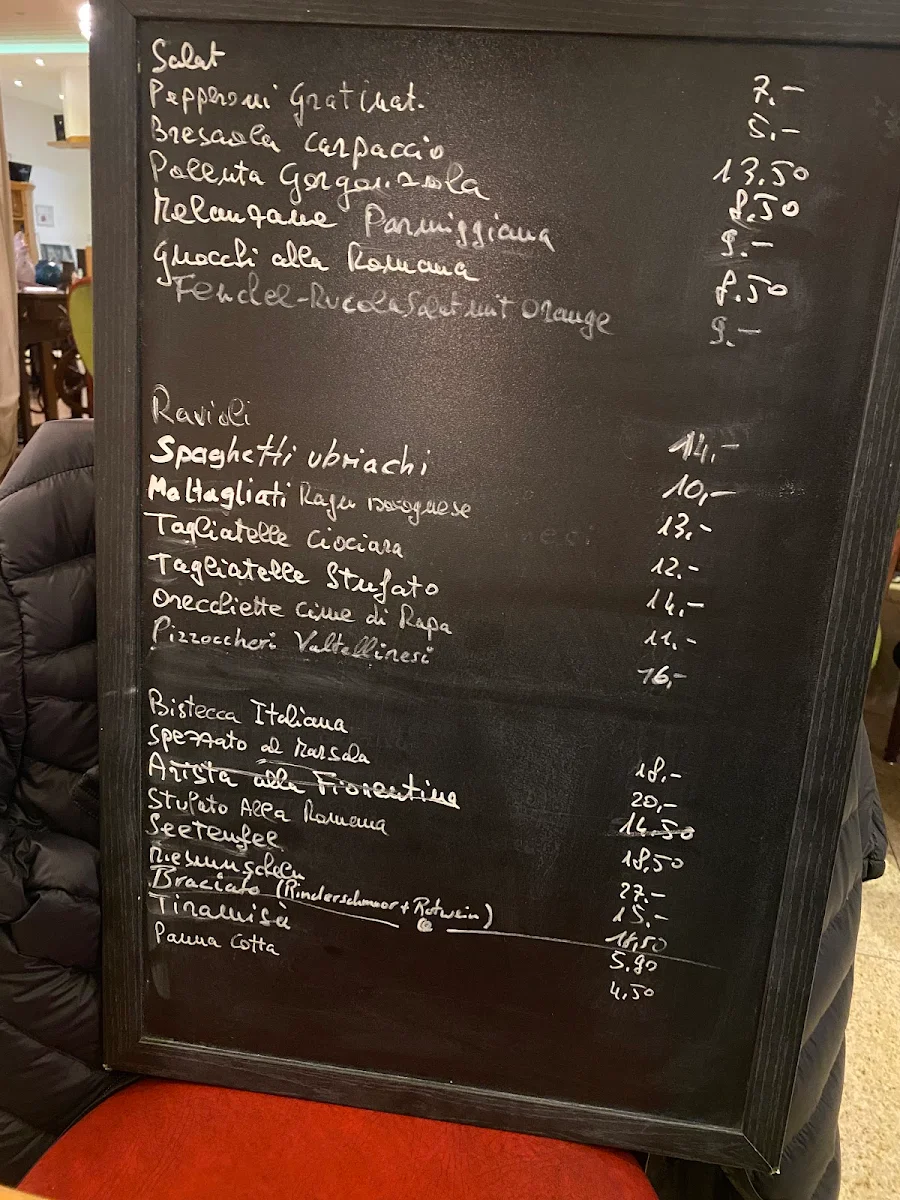 Salat 7.-
Pepperoni Gratinat. 5.-
Bresaola Carpaccio 13.50
Pollenta Gorgonzola 8.50
Melanzane Parmiggiana 9.-
Gnocchi alla Romana 8.50
Fendel-Rucola Salat mit Orange 9.-
Ravioli 14,-
Spaghetti ubriachi 10,-
Maltagliati Ragu Bolognese 13,-
Tagliatelle Ciociara 12.-
Tagliatelle Stufato 14,-
Orecchiette Cime di Rapa 11,-
Pizzoccheri Valtellinesi 16,-
Bistecca Italiana 18,-
Spezzato al Marsala 20,-
Arista alla Fiorentina 14.50
Stufato Alla Romana 18,50
Seeteufel 27.-
Miesmuscheln 15,-
Braciato (Rinderschmor + Rotwein) 18,50
Tiramisù 5.90
Panna Cotta 4,50